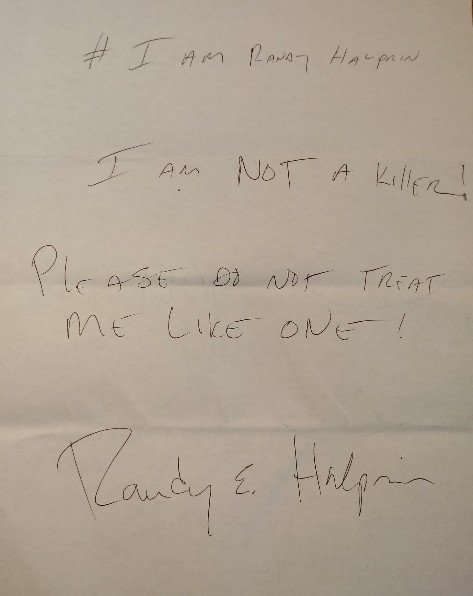 # I AM RANDY HALPRIN
I AM NOT A KillER!
PlEASE DO NOT TREAT
ME LIKE ONE!
Randy E. Halprin